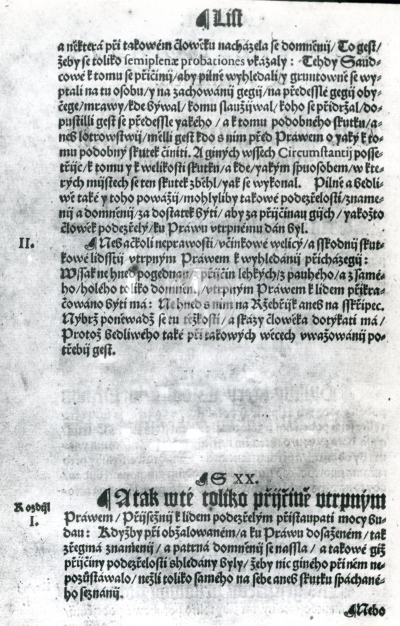 ¶ List
a některá při takowém člowěku nacházela se domněnij/ To gest/
žeby se toliko semiplenæ probationes vkázaly: Tehdy Saud-
cowé k tomu se přičinij/ aby pilně wyhledali/ y gruntowně se wy-
ptali na tu osobu/ y na zachowánij gegij/ na předessle gegij oby-
čege/ mrawy/ kde býwal/ komu slaužijwal/ koho se přidržal/ do-
pustilli gest se předessle yakého/ a k tomu podobného skutku/ a-
neb lotrowstwij/ mělli gest kdo s nim před Práwem o yaký k to-
mu podobný skutek činiti. A giných wssech Circumstantij posse-
třijc/ k tomu y k welikosti skutku/ a kde/ yakým spuosobem/ w kte-
rých mijstech se ten skutek zběhl/ yak se wykonal. Pilně a bedli-
wě také y toho powážij/ mohlyliby takowé podezřelosti/ zname-
nij a domněnij/ za dostatek býti/ aby za přijčinau gijch/ yakožto
člowěk podezřelý/ ku Práwu vtrpnému dán byl.
II. ¶ Neb ačkoli neprawosti/ včinkowé welicý/ a sskodnij skut-
kowé lidsstij vtrpným Práwem k wyhledánij přicházegij:
Wssak ne hned pogednau/ z přijčin lehkých/ z pauhého/ a z samé-
ho/ holého toliko domněnij/ vtrpným Práwem k lidem přikra-
čowáno býti má: Ne hned s nim na Ržebřijk aneb na sskřipec.
Nýbrž poněwadž se tu těžkosti/ a skázy člowěka dotýkati má/
Protož bedliwého také při takowých wěcech vwažowánij po-
třebij gest.
¶ S XX.
Rozdijl
I.
¶ A tak wté toliko přijčině vtrpným
Práwem/ Přijsežnij k lidem podezřelým přistaupati mocy bu-
dau: Kdyžby při obžalowaném/ a ku Práwu dosaženém/ tak
zřegmá znamenij/ a patrná domněnij se nassla/ a takowé giž
přijčiny podezřelosti shledany byly/ žeby nic giného při něm ne-
pozuostáwalo/ nežli toliko samého na sebe aneb skutku spáchané-
ho seznánij.
¶ Nebo